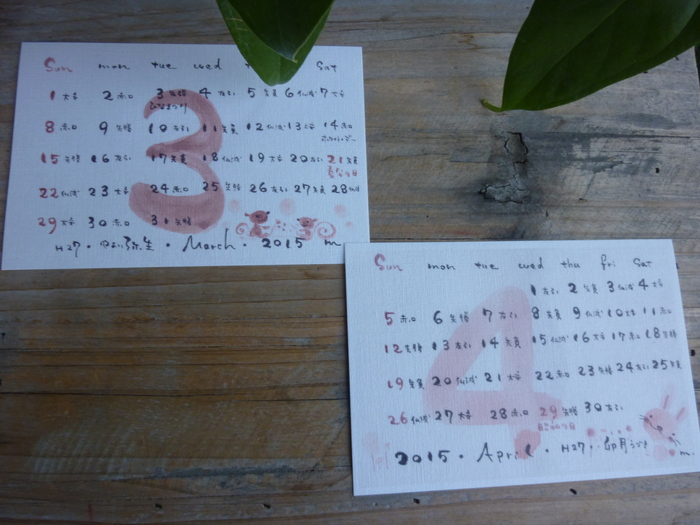 Sun mon tue wed Sat
1 大安 2 赤口 3 先勝 4 友引 5 先負 6 仏滅 7 大安
ひなまつり
8 赤口 9 先勝 10 友引 11 先負 12 仏滅 13 大安 14 赤口
ホワイトデー
15 先勝 16 友引 17 先負 18 仏滅 19 大安 20 友引 21 先負
春分の日
22 仏滅 23 大安 24 赤口 25 先勝 26 友引 27 先負 28 仏滅
29 大安 30 赤口 31 先勝
H27・やよい 弥生・March・2015 m.
3
Sun mon tue wed thu fri Sat
1 友引 2 先負 3 仏滅 4 大安
5 赤口 6 先勝 7 友引 8 先負 9 仏滅 10 大安 11 赤口
12 先勝 13 友引 14 先負 15 仏滅 16 大安 17 赤口 18 先勝
19 先負 20 仏滅 21 大安 22 赤口 23 先勝 24 友引 25 先負
26 仏滅 27 大安 28 赤口 29 先勝 30 友引
昭和の日
2015・April・H27・卯月 うづき m.
4